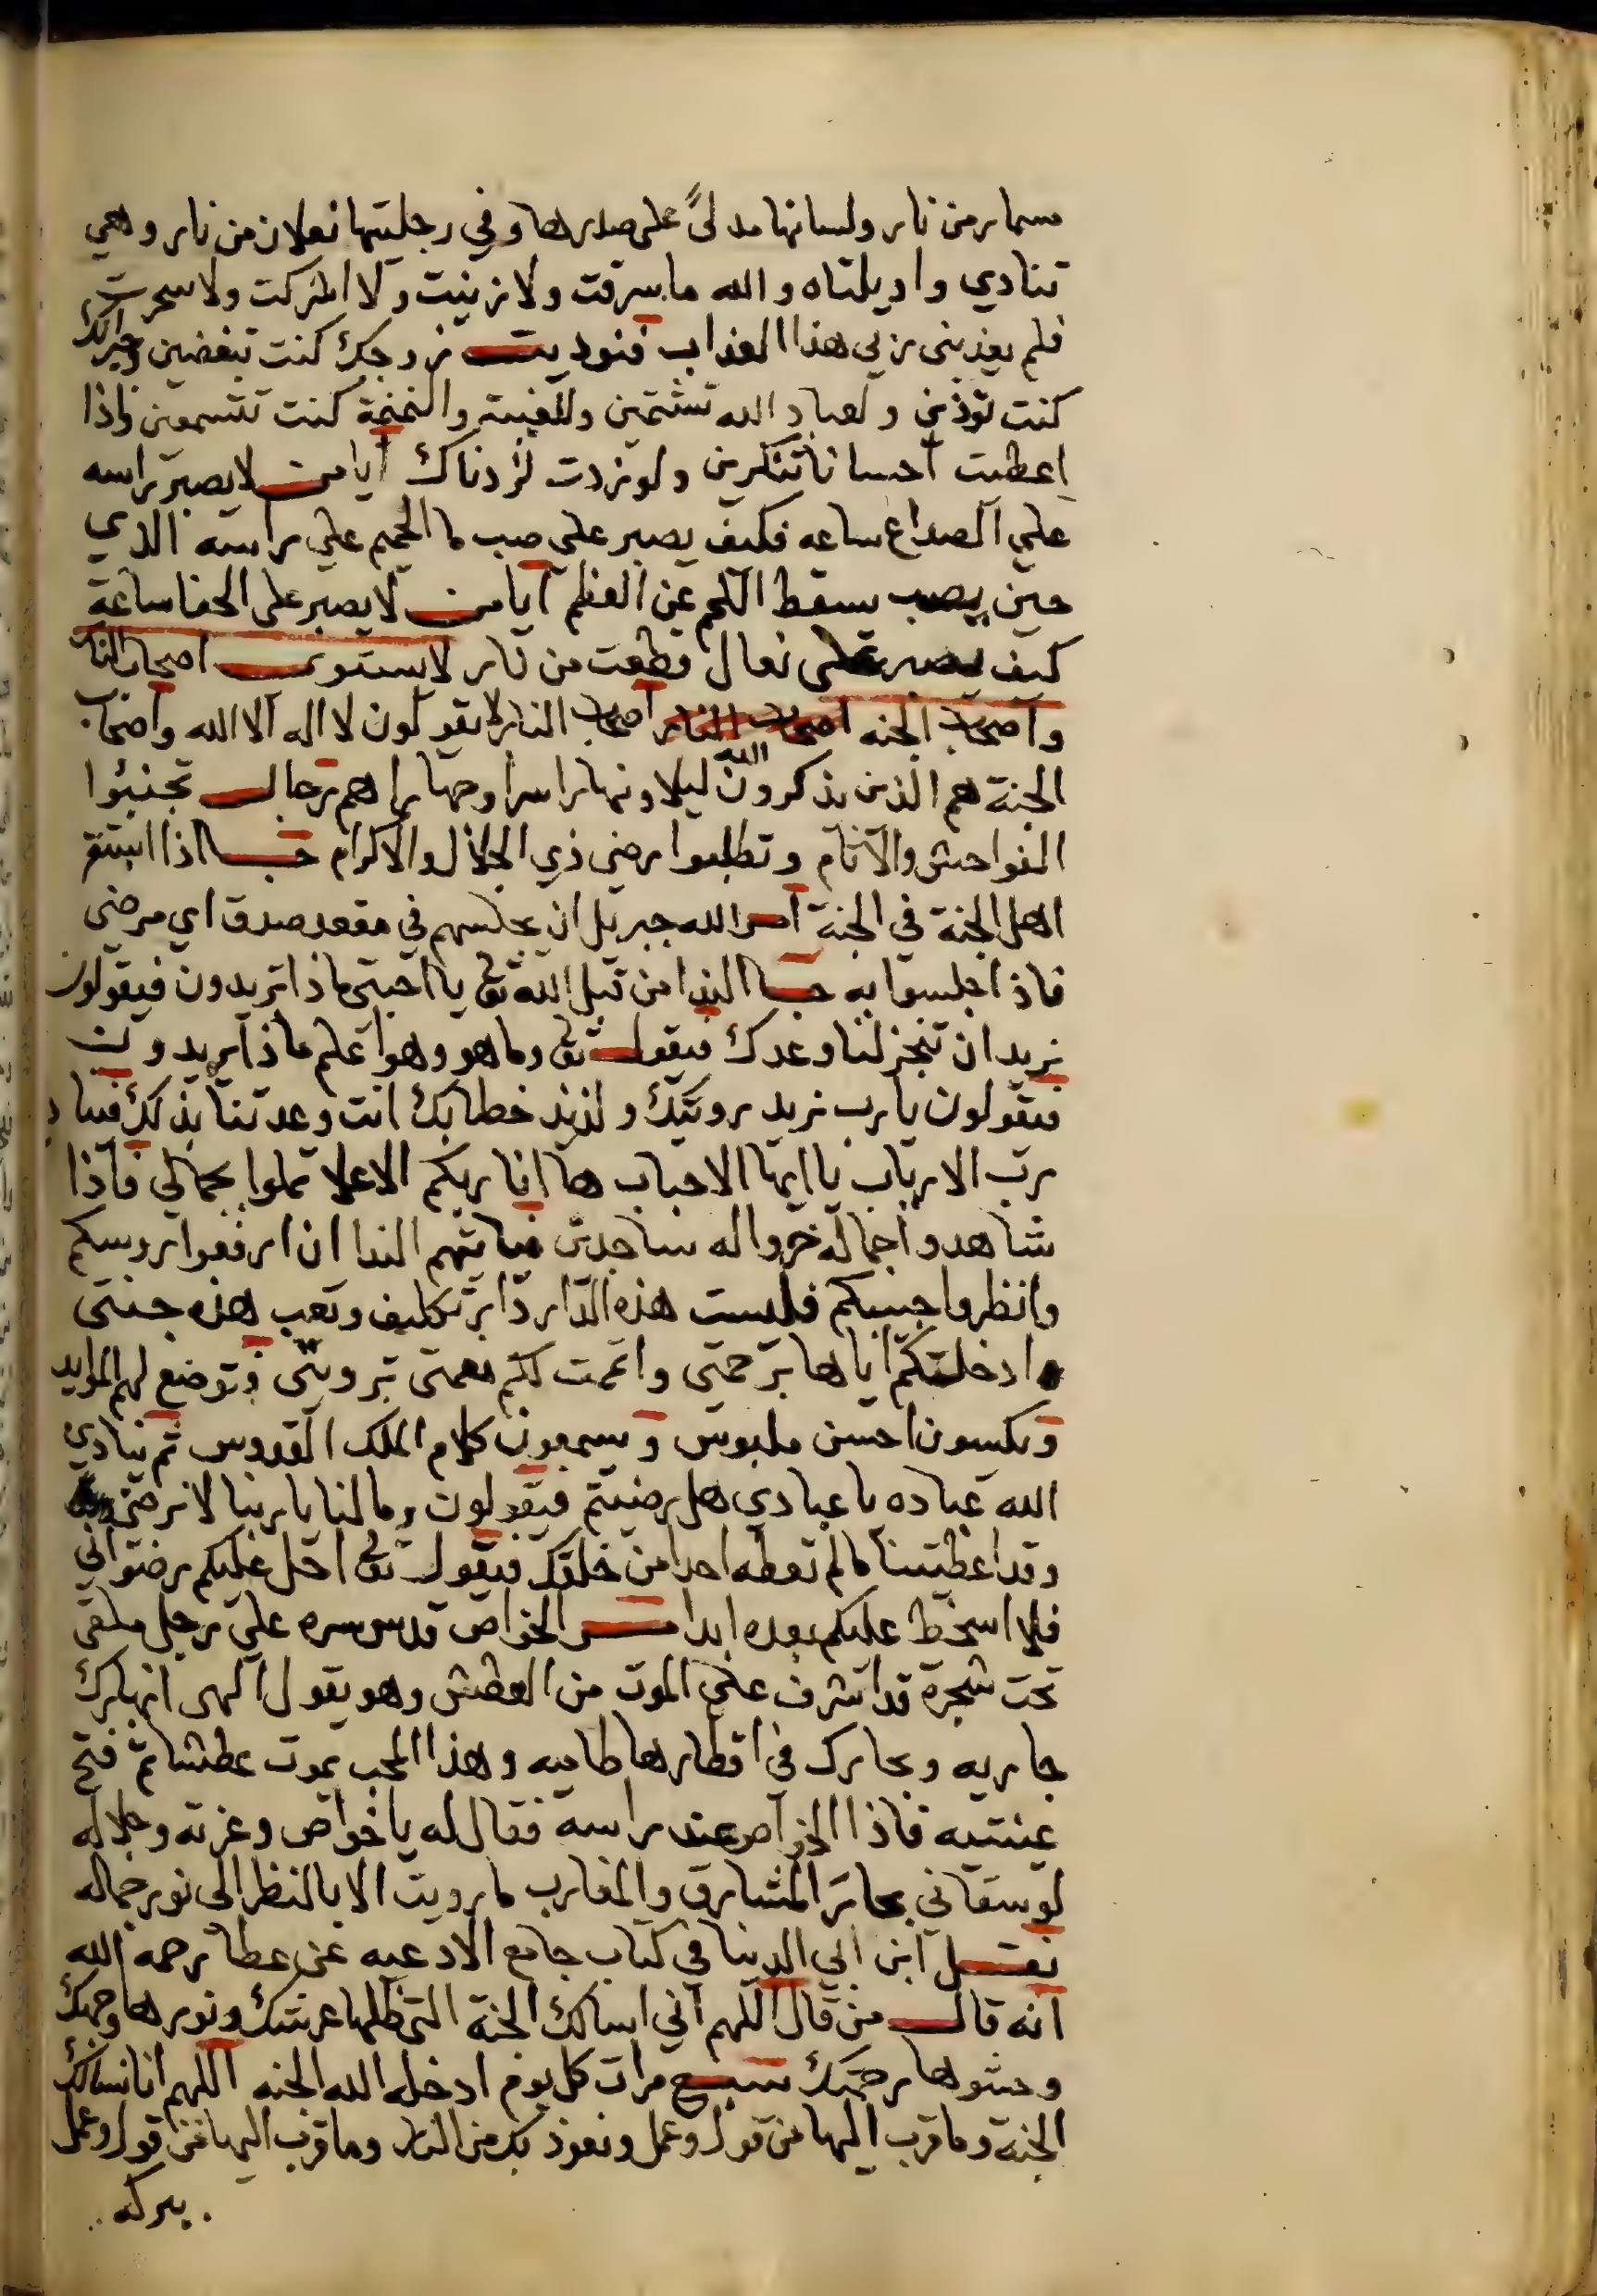 مسمار من نار ولسانها مدلىً على صدرها وفي رجليها نعلان من نار وهي
تنادي واويلتاه والله ما سرقت ولا زنيت ولا اشركت ولا سحرت
فلم يعذبنى ربي هذا العذاب فنوديت زوجك كنت تبغضين وجيرانك
كنت تؤذين ولعباد الله تشتمين وللغيبة والنميمة كنت تتسمعين واذا
اعطيت احسانا تنكرين ولو زدت لزدناك ايا من لا يصبر راسه
علي الصداع ساعه فكيف يصبر علي صب ما الحميم علي راسه الذي
حين يصب يسقط اللحم عن العظم ايا من لا يصبر على الحفا ساعة
كيف يصبر على نعال قطعت من نار لا يستوى اصحاب النار
واصحاب الجنه اصحاب النار اصحاب النار لا يقولون لا اله الا الله واصحاب
الجنة هم الذين يذكرون الله ليلا ونهارا سرا وجهارا هم رجال تجنبوا
الفواحش والآثام وتطلبوا رضى ذي الجلال والاكرام حبا اذا استقر
اهل الجنة في الجنة امر الله جبريل ان يجلسهم في مقعد صدق اي مرضى
فاذا جلسوا به جا الندا من قبل الله تعالى يا احبتى ماذا تريدون فيقولون
نريد ان تنجز لنا وعدك فيقول تعالى وما هو وهو اعلم ماذا يريدون
فيقولون يا رب نريد رويتك ولذيذ خطابك انت وعدتنا بذلك فيناد
رب الارباب يا ايها الاحباب ها انا ربكم الاعلا تملوا بجمالي فاذا
شاهدوا جماله خروا له ساجدين فياتهم الندا ان ارفعوا روسكم
وانظروا حبيبكم فليست هذه الدار دار تكليف وتعب هذه جنتى
وادخلتكم اياها برحمتى واتممت لكم نعمتى برويتى فتوضع لهم الموايد
ويكسون احسن ملبوس ويسمعون كلام الملك القدوس ثم ينادي
الله عباده يا عبادي هل رضيتم فيقولون وما لنا يا ربنا لا نرضى
وقد اعطيتنا ما لم تعطه احدا من خلقك فيقول تعالى احل عليكم رضواني
فلا اسخط عليكم بعده ابدا مر الخواص قدس سره علي رجل ملقى
تحت شجرة قد اشرف علي الموت من العطش وهو يقول الهى انهارك
جاريه وبحارك في اقطارها طاميه وهذا المحب يموت عطشا ثم فتح
عينيه فاذا الخواص عند راسه فقال له يا خواص وعزته وجلاله
لو سقاني بحار المشارق والمغارب ما رويت الا بالنظر الى نور جماله
نقل ابن ابي الدنيا في كتاب جامع الادعيه عن عطا رحمه الله
انه قال من قال اللهم اني اسالك الجنة التى ظلها عرشك ونورها وجهك
وحشوها رحمتك سبع مرات كل يوم ادخله الله الجنه اللهم انا نسالك
الجنة وما قرب اليها من قول وعمل ونعوذ بك من النار وما قرب اليها من قول وعمل
ببركه